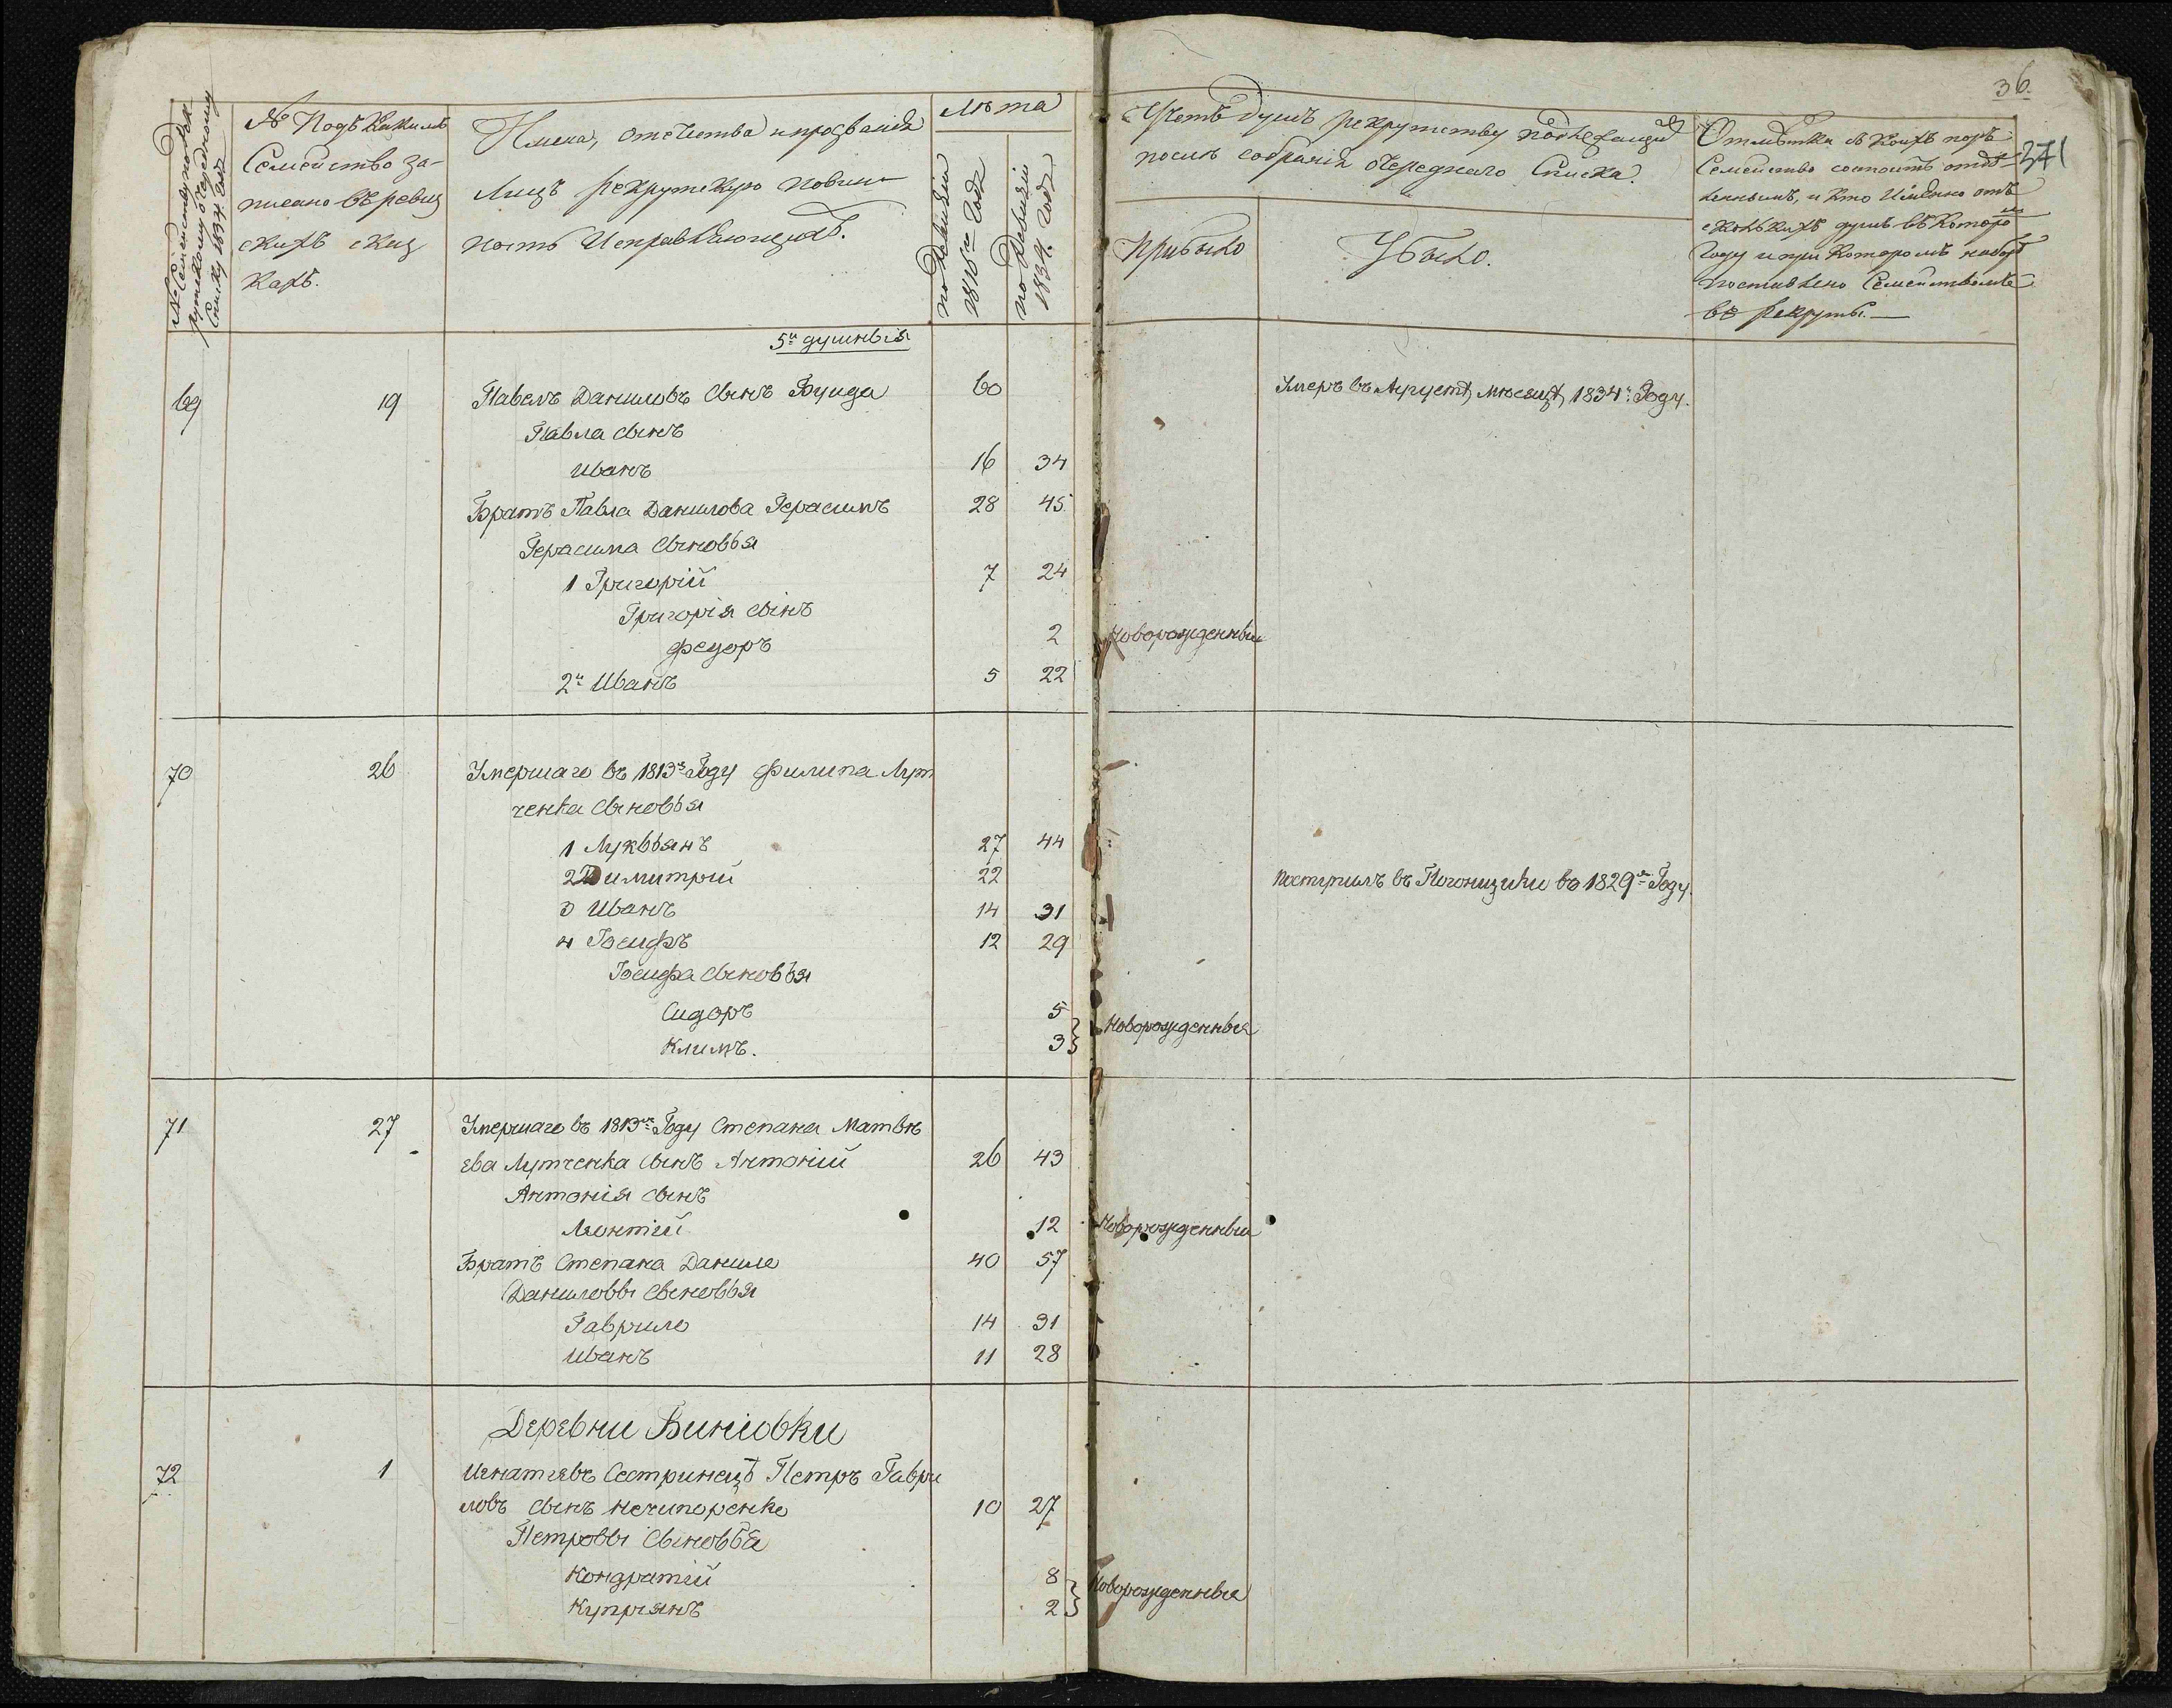 36.
271
№ Семейству по рек
рутскому очередному
списку 1834 года
№ Подъ какимъ
Семейство за-
писано въ ревиз
скихъ сказ
кахъ.
Имена, отечества и прозванія
Лицъ рекрутскую повин-
ность исправляющихъ.
Лѣта
по ревизіи
1816го года
по ревизіи
1834. года
Счетъ душъ рекрутству подлежащихъ
послѣ собранія очереднаго Списка.
Прибыло
Убыло.
Отмѣтка съ коихъ поръ
Семейство состоитъ отдѣ
леннымъ, и кто имянно отъ
сколькихъ душъ въ которо
году и при которомъ наборѣ
поставлено Семействомъ
въ рекруты.
5и душныя
69 19 Павелъ Даниловъ Сынъ Бунда 60 Умеръ въ Августѣ мѣсяцѣ 1834. Году.
Павла сынъ
Иванъ 16 34
Братъ Павла Данилова Герасимъ 28 45
Герасима Сыновья
1 Григорій 7 24
Григорія сынъ
Федоръ 2 Новорожденный
2й Иванъ 5 22
70 26 Умершаго въ 1813м Году Филипа Лут
ченка Сыновья
1 Лукьянъ 27 44
2 Димитрій 22 Поступилъ въ Погонщики въ 1829м Году.
3 Иванъ 14 31
4 Іосифъ 12 29
Іосифа Сыновья
Сидоръ 5
Новорожденныя
Климъ. 3
71 27 Умершаго въ 1813м Году Степана Матвѣ
ева Лутченка Сынъ Антоній 26 43
Антонія сынъ
Леонтій 12 Новорожденный
Братъ Степана Данило 40 57
Даниловы Сыновья
Гаврило 14 31
Иванъ 11 28
Деревни Биніовки
72 1 Игнатіевъ Сестринецъ Петръ Гаври
ловъ Сынъ Нечипоренко 10 27
Петровы Сыновья
Кондратій 8
Новорожденныя
Купріянъ 2